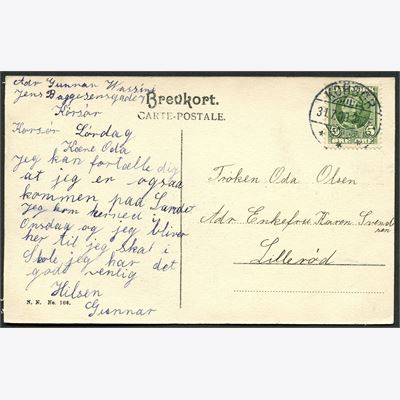 Adr Gunnar Wassini
Jens Baggesensgade
Korsør
Brevkort.
CARTE-POSTALE.
KORSØR
Korsør Lørdag
Kære Oda
Jeg kan fortælle dig
at jeg er ogsaa
kommen paa Landet
Jeg kom herned i
Onsdag og jeg bliver
her til jeg skal i
Skole, jeg har det
godt venlig
Hilsen
Gunnar
Frøken Oda Olsen
Adr. Enkefru Karen Svend
sen
Lillerød
N. N. No. 166.